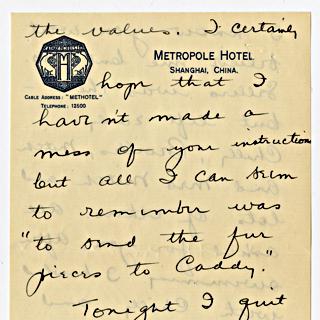 the values. I certainly
METROPOLE HOTEL
SHANGHAI, CHINA.
CABLE ADDRESS: "METHOTEL"
TELEPHONE: 12500
hope that I
have n't made a
mess of your instructions
but all I can seem
to remember was
"to send the fur
pieces to Caddy."
Tonight I quit